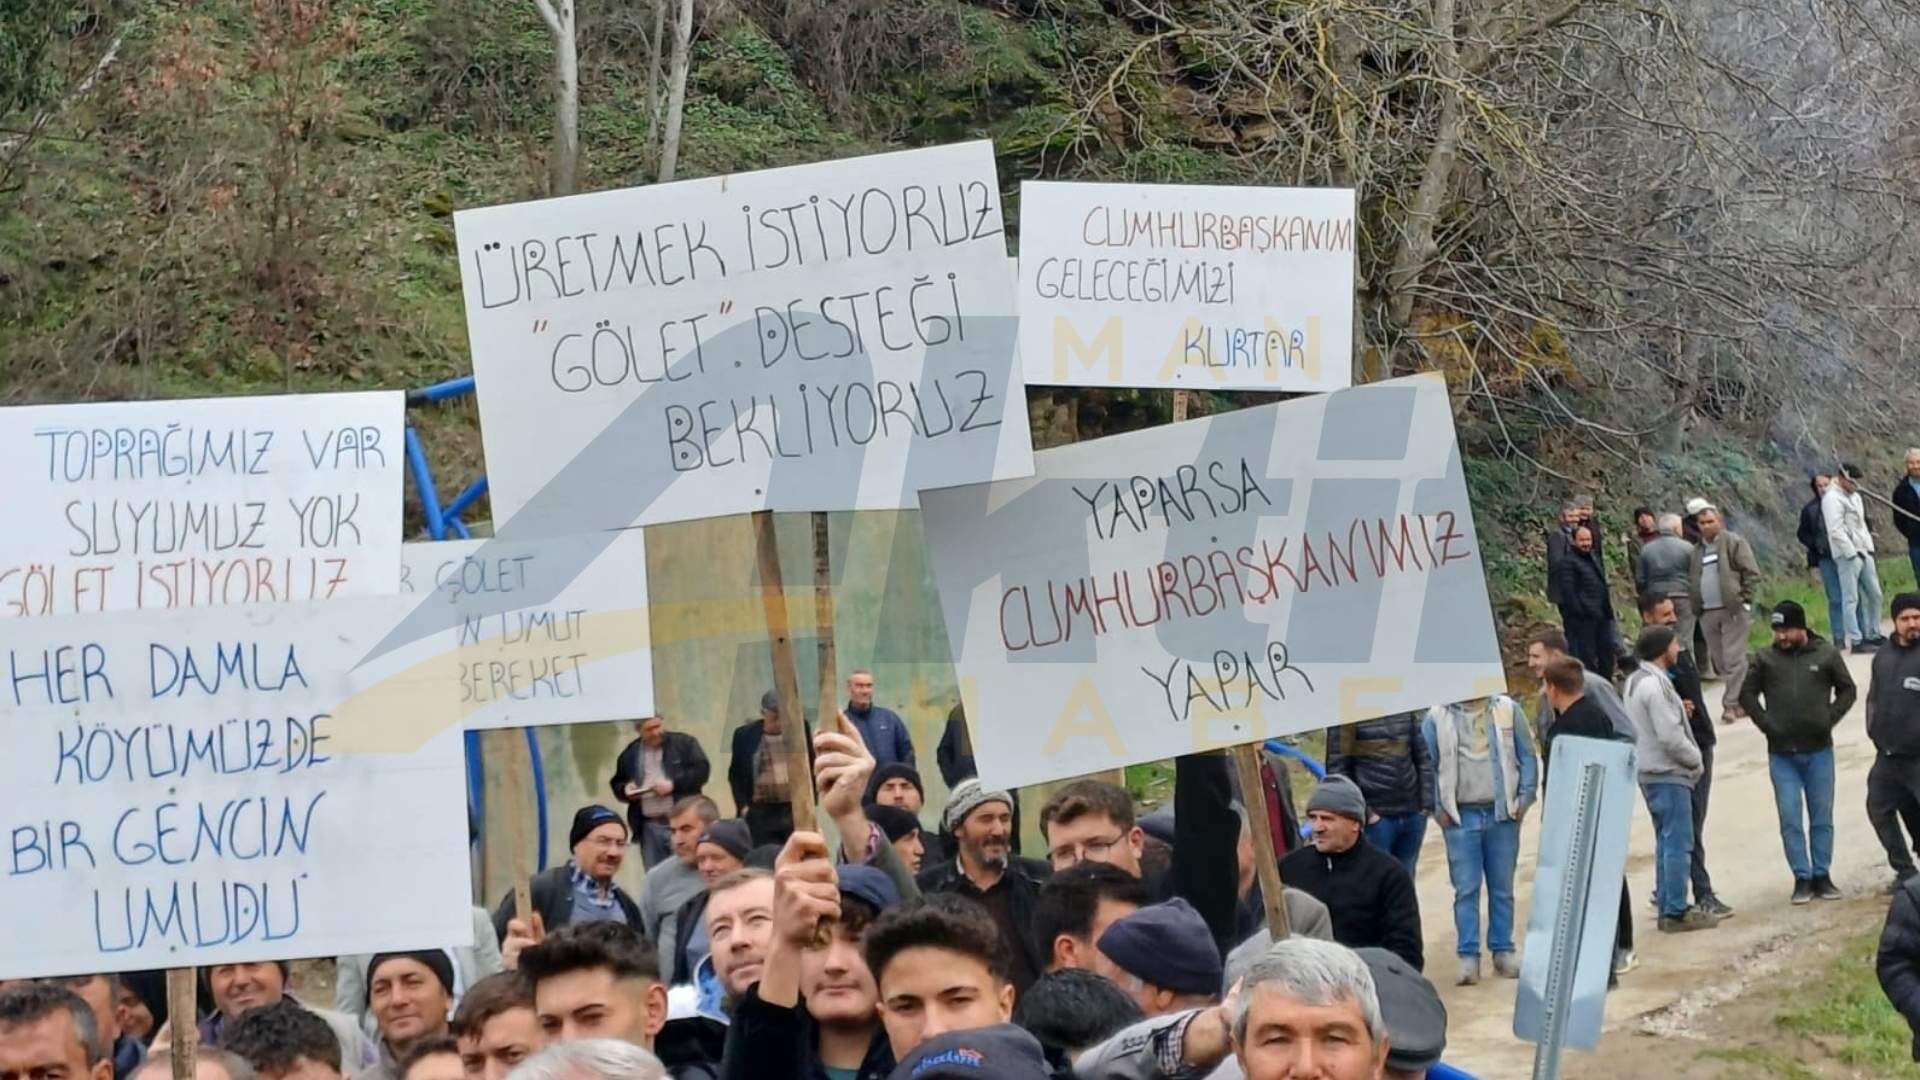 ÜRETMEK İSTİYORUZ
"GÖLET". DESTEĞİ
BEKLİYORUZ
CUMHURBAŞKANIM
GELECEĞİMİZİ
KURTAR
TOPRAĞIMIZ VAR
SUYUMUZ YOK
GÖLET İSTİYORUZ
GÖLET
UMUT
BEREKET
YAPARSA
CUMHURBAŞKANIMIZ
YAPAR
HER DAMLA
KÖYÜMÜZDE
BİR GENCİN
UMUDU
MANİSA
Aktif
HABER